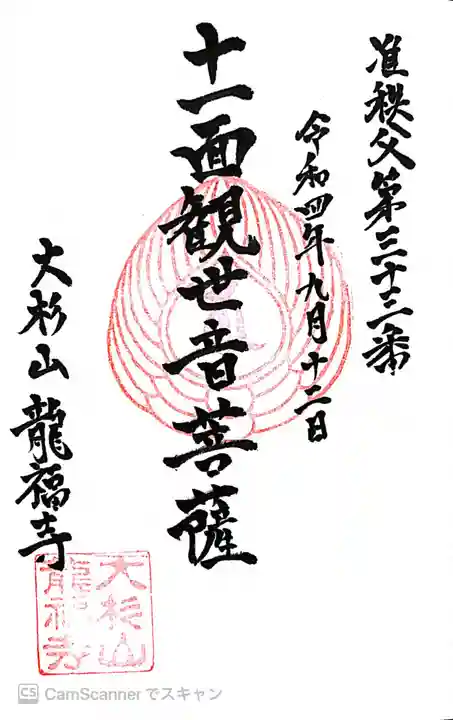 准秩父第三十三番
令和四年九月十二日
十一面観世音菩薩
大杉山 龍福寺
大杉山
龍福寺
CS CamScanner でスキャン